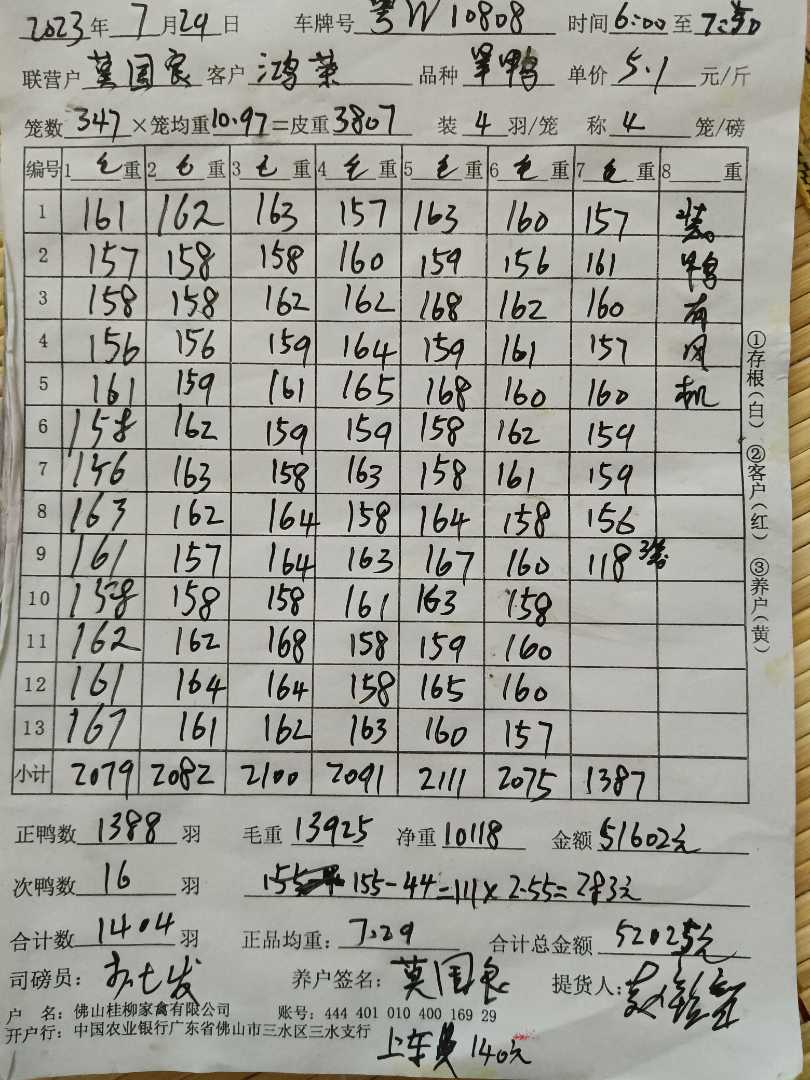 2023年 7 月29日 车牌号 粤W10808 时间6:00至7:50
联营户 莫国良 客户 鸿荣 品种 旱鸭 单价 5.1 元/斤
笼数 347 ×笼均重10.97=皮重3807 装 4 羽/笼 称 4 笼/磅
编号 1 毛 重 2 毛 重 3 毛 重 4 毛 重 5 毛 重 6 毛 重 7 毛 重 8 重
1 161 162 163 157 163 160 157 装
2 157 158 158 160 159 156 161 鸭
3 158 158 162 162 168 162 160 有
4 156 156 159 164 159 161 157 风
5 161 159 161 165 168 160 160 机
6 158 162 159 159 158 162 159
7 156 163 158 163 158 161 159
8 163 162 164 158 164 158 156
9 161 157 164 163 167 160 118 3笼
10 158 158 158 161 163 158
11 162 162 168 158 159 160
12 161 164 164 158 165 160
13 167 161 162 163 160 157
小计 2079 2082 2100 2091 2111 2075 1387
①存根(白) ②客户(红) ③养户(黄)
正鸭数 1388 羽 毛重 13925 净重 10118 金额 51602元
次鸭数 16 羽 155-44=111×2.55=283元
合计数 1404 羽 正品均重: 7.29 合计总金额 52025元
司磅员: 养户签名: 莫国良 提货人:
户 名: 佛山桂柳家禽有限公司 账号: 444 401 010 400 169 29
开户行: 中国农业银行广东省佛山市三水区三水支行
上车费 140元